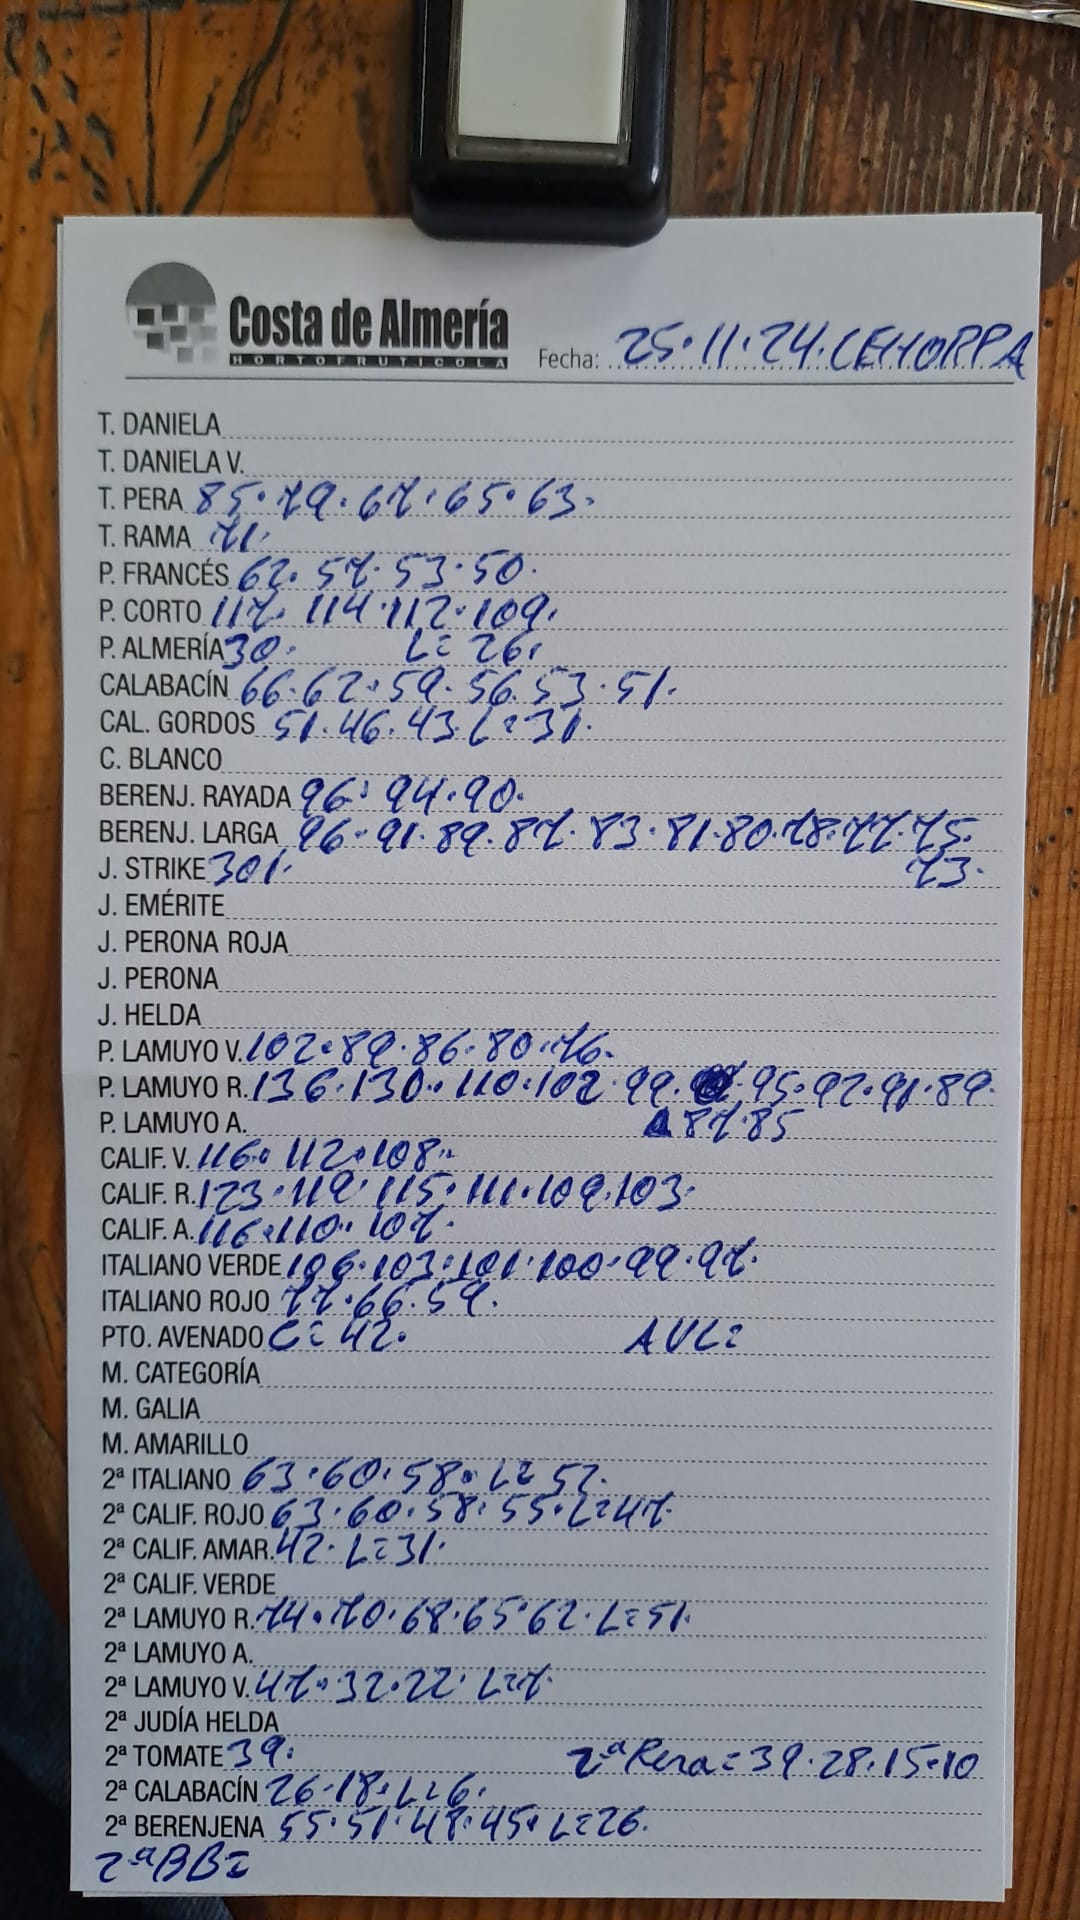 Costa de Almería
HORTOFRUTICOLA
Fecha: 25.11.24. CEHORPA
T. DANIELA
T. DANIELA V.
T. PERA 85. 79. 67. 65. 63.
T. RAMA 71.
P. FRANCÉS 62. 57. 53. 50.
P. CORTO 117. 114. 112. 109.
P. ALMERÍA 30. L= 26.
CALABACÍN 66. 62. 59. 56. 53. 51.
CAL. GORDOS 51. 46. 43. L= 31.
C. BLANCO
BERENJ. RAYADA 96. 94. 90.
BERENJ. LARGA 96. 91. 89. 87. 83. 81. 80. 78. 77. 75.
J. STRIKE 301. 73.
J. EMÉRITE
J. PERONA ROJA
J. PERONA
J. HELDA
P. LAMUYO V. 102. 89. 86. 80. 76.
P. LAMUYO R. 136. 130. 110. 102. 99. 95. 92. 91. 89.
P. LAMUYO A. 87. 85
CALIF. V. 116. 112. 108.
CALIF. R. 123. 119. 115. 111. 109. 103.
CALIF. A. 116. 110. 107.
ITALIANO VERDE 106. 103. 101. 100. 99. 97.
ITALIANO ROJO 77. 66. 59.
PTO. AVENADO C= 42. AVL=
M. CATEGORÍA
M. GALIA
M. AMARILLO
2ª ITALIANO 63. 60. 58. L= 52.
2ª CALIF. ROJO 63. 60. 58. 55. L= 47.
2ª CALIF. AMAR. 42. L= 31.
2ª CALIF. VERDE
2ª LAMUYO R. 74. 70. 68. 65. 62. L= 51.
2ª LAMUYO A.
2ª LAMUYO V. 47. 32. 22. L= 7.
2ª JUDÍA HELDA
2ª TOMATE 39. 2ª Pera= 39. 28. 15. 10
2ª CALABACÍN 26. 18. L= 6.
2ª BERENJENA 55. 51. 48. 45. L= 26.
2ª BB=